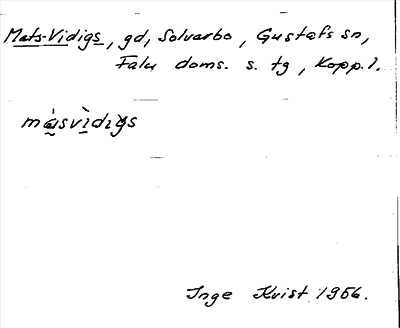 Mats-Vidigs, gd, Solvarbo, Gustafs sn,
Falu doms. s. tg, Kopp. l.
màsvìdigs
Inge Kvist 1956.